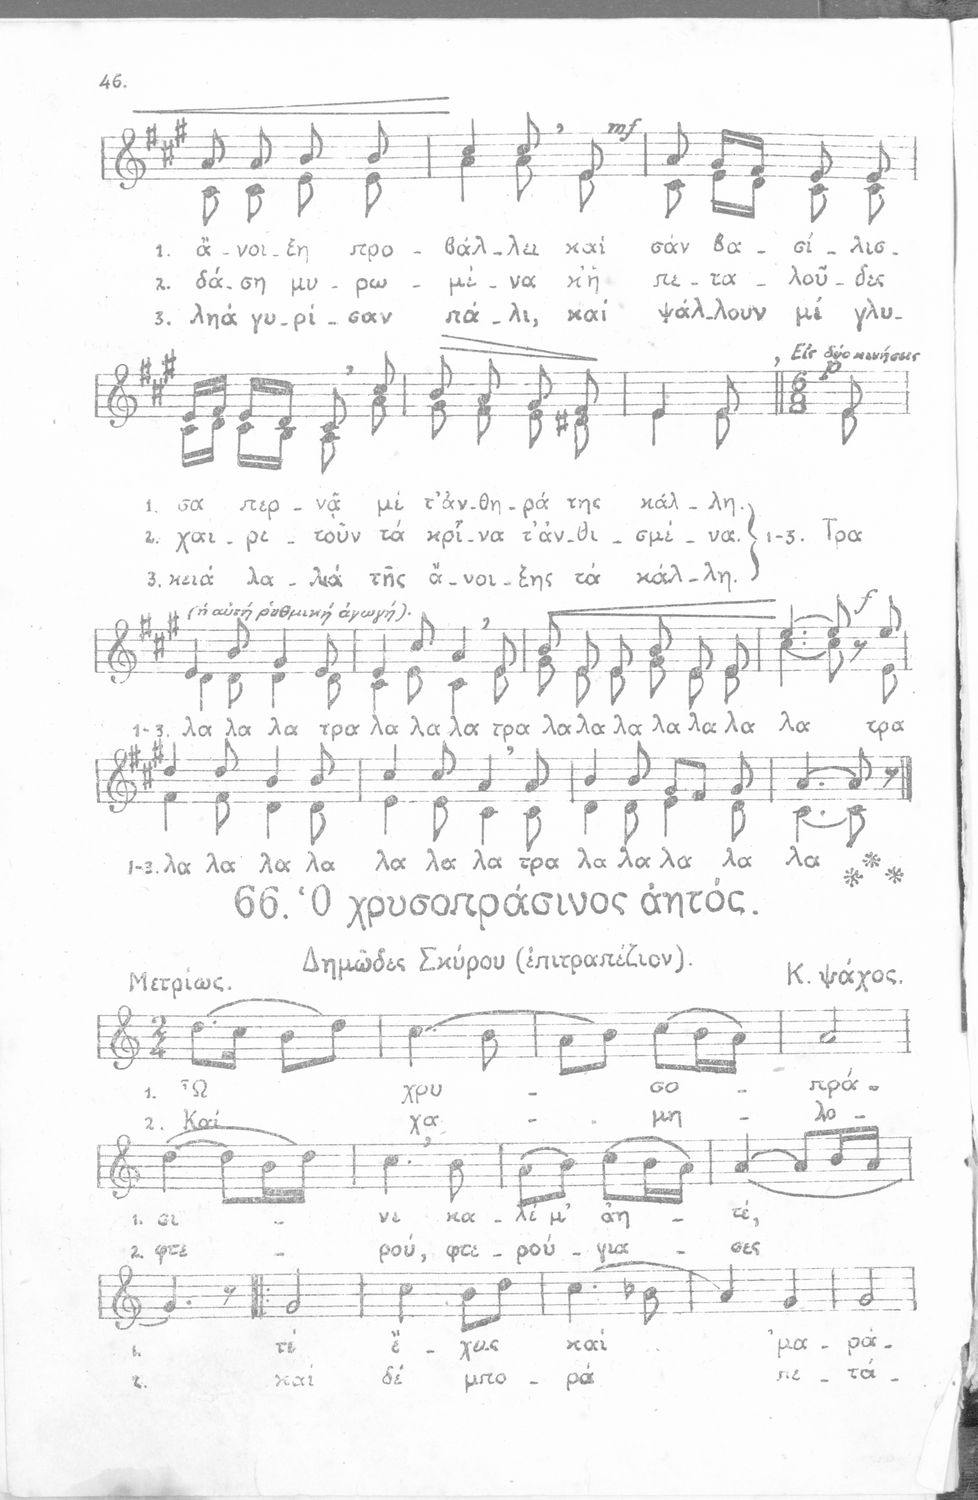 46.
mf
1. ἄ - νοι - ξη προ - βάλ - λει καί σάν βα - σί - λισ -
2. δά - ση μυ - ρω - μέ - να κ'ἡ πε - τα - λοῦ - δες
3. ληά γυ - ρί - σαν πά - λι, καί ψάλ - λουν μέ γλυ -
Εἰς δύο κινήσεις
p
6
8
1. σα περ - νᾷ μέ τ'ἀν - θη - ρά της κάλ - λη.
2. χαι - ρε - τοῦν τά κρῖ - να τ'ἀν - θι - σμέ - να. } 1-3. Τρα
3. κειά λα - λιά τῆς ἄ - νοι - ξης τά κάλ - λη.
(ἡ αὐτή ῥυθμική ἀγωγή).
f
1-3. λα λα λα τρα λα λα λα τρα λα λα λα λα λα λα λα τρα
1-3. λα λα λα λα λα λα λα τρα λα λα λα λα λα
66. Ὁ χρυσοπράσινος ἀητός.
Δημῶδες Σκύρου (ἐπιτραπέζιον).
Μετρίως.
Κ. ψάχος.
2
4
1. Ὦ χρυ - σο - πρά -
2. Καί χα - - μη - λο -
1. σι - νε κα - λέ μ' ἀη - τέ,
2. φτε - ρού, φτε - ρού - για - σες
1. τί ἔ - χεις καί 'μα - ρά -
2. καί δέ μπο - ρά πε - τά -